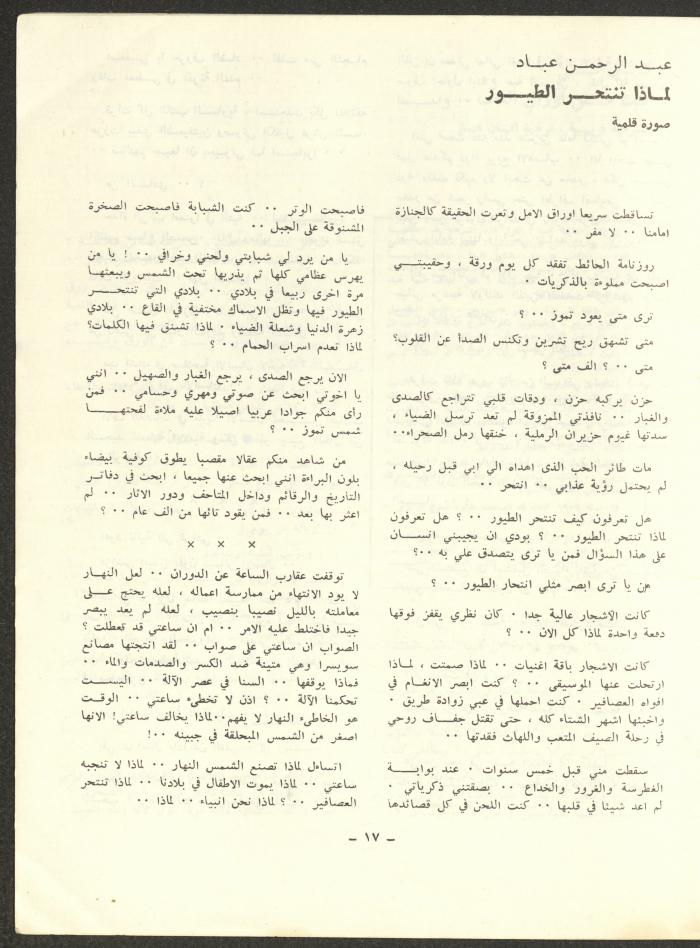 عبد الرحمن عباد
لماذا تنتحر الطيور
صورة قلمية
تساقطت سريعا اوراق الامل وتعرت الحقيقة كالجنازة
امامنا ٠٠ لا مفر ٠٠
روزنامة الحائط تفقد كل يوم ورقة ، وحقيبتي
اصبحت مملوءة بالذكريات ٠
ترى متى يعود تموز ٠٠ ؟
متى تشهق ريح تشرين وتكنس الصدأ عن القلوب؟
متى ٠٠ ؟ الف متى ؟
حزن يركبه حزن ، ودقات قلبي تتراجع كالصدى
والغبار ٠٠ نافذتي الممزوقة لم تعد ترسل الضياء ،
سدتها غيوم حزيران الرملية ، خنقها رمل الصحراء٠٠
مات طائر الحب الذى اهداه الي ابي قبل رحيله ،
لم يحتمل رؤية عذابي ٠٠ انتحر ٠٠
هل تعرفون كيف تنتحر الطيور ٠٠ ؟ هل تعرفون
لماذا تنتحر الطيور ٠٠ ؟ بودي ان يجيبني انسان
على هذا السؤال فمن يا ترى يتصدق علي به ٠٠؟
من يا ترى ابصر مثلي انتحار الطيور ٠٠ ؟
كانت الاشجار عالية جدا ٠ كان نظري يقفز فوقها
دفعة واحدة لماذا كل الان ٠٠ ؟
كانت الاشجار باقة اغنيات ٠٠ لماذا صمتت ، لماذا
ارتحلت عنها الموسيقى ٠٠ ؟ كنت ابصر الانغام في
افواه العصافير ٠ كنت احملها في عبي زوادة طريق ٠
واخبئها اشهر الشتاء كله ، حتى تقتل جفاف روحي
في رحلة الصيف المتعب واللهاث فقدتها ٠٠
سقطت مني قبل خمس سنوات ٠ عند بوابة
الغطرسة والغرور والخداع ٠٠ بصقتني ذكرياتي ٠
لم اعد شيئا في قلبها ٠٠ كنت اللحن في كل قصائدها
فاصبحت الوتر ٠٠ كنت الشبابة فاصبحت الصخرة
المشنوقة على الجبل ٠٠
يا من يرد لي شبابتي ولحني وخرافي ٠٠ ! يا من
يهرس عظامي كلها ثم يذريها تحت الشمس ويبعثها
مرة اخرى ربيعا في بلادي ٠٠ بلادي التي تنتحر
الطيور فيها وتظل الاسماك مختفية في القاع ٠٠ بلادي
زهرة الدنيا وشعلة الضياء ٠ لماذا تشنق فيها الكلمات؟
لماذا تعدم اسراب الحمام ٠٠ ؟
الان يرجع الصدى ، يرجع الغبار والصهيل ٠٠ انني
يا اخوتي ابحث عن صوتي ومهري وحسامي ٠٠ فمن
رأى منكم جوادا عربيا اصيلا عليه ملاءة لفحتها
شمس تموز ٠٠ ؟
من شاهد منكم عقالا مقصبا يطوق كوفية بيضاء
بلون البراءة انني ابحث عنها جميعا ، ابحث في دفاتر
التأريخ والرقائم وداخل المتاحف ودور الاثار ٠٠ لم
اعثر بها بعد ٠٠ فمن يقود تائها من الف عام ٠٠ ؟
× × ×
توقفت عقارب الساعة عن الدوران ٠٠ لعل النهار
لا يود الانتهاء من ممارسة اعماله ، لعله يحتج على
معاملته بالليل نصيبا بنصيب ، لعله لم يعد يبصر
جيدا فاختلط عليه الامر ٠٠ ام ان ساعتي قد تعطلت ؟
الصواب ان ساعتي على صواب ٠٠ لقد انتجتها مصانع
سويسرا وهي متينة ضد الكسر والصدمات والماء ٠٠
فماذا يوقفها ٠٠ السنا في عصر الآلة ٠٠ اليست
تحكمنا الآلة ٠٠ ؟ اذن لا تخطىء ساعتي ٠٠ الوقت
هو الخاطىء النهار لا يفهم٠٠لماذا يخالف ساعتي! الانها
اصغر من الشمس المبحلقة في جبينه ٠٠!
اتساءل لماذا تصنع الشمس النهار ٠٠ لماذا لا تنجبه
ساعتي ٠٠ لماذا يموت الاطفال في بلادنا ٠٠ لماذا تنتحر
العصافير ٠٠ ؟ لماذا نحن انبياء ٠٠ لماذا ٠٠
– ١٧ –